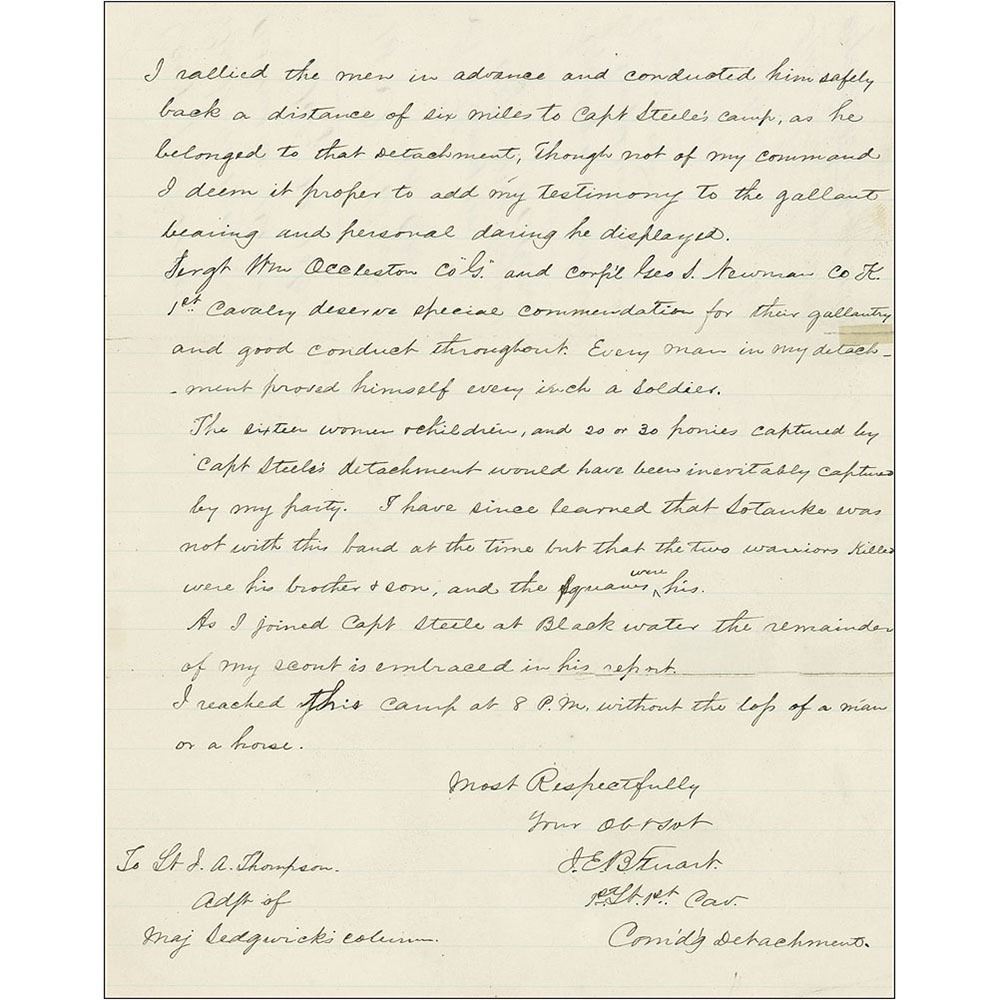 I rallied the men in advance and conducted him safely
back a distance of six miles to Capt Steele's camp, as he
belonged to that Detachment, Though not of my command
I deem it proper to add my testimony to the gallant
bearing and personal daring he displayed.
Sergt Wm Occleston Co "G" and corp'l Geo S. Newman Co K.
1st Cavalry deserve special commendation for their gallantry
and good conduct throughout. Every man in my detach-
-ment proved himself every inch a soldier.
The sixteen women & children, and 20 or 30 ponies captured by
Capt Steele's detachment would have been inevitably captured
by my party. I have since learned that Sotanke was
not with this band at the time but that the two warriors killed
were his brother & son, and the squaws were his.
As I joined Capt Steele at Black water the remainder
of my scout is embraced in his report.
I reached this camp at 8 P.M. without the loss of a man
or a horse.
Most Respectfully
Your Obt Svt
J.E.B Stuart.
1st Lt. 1st. Cav.
Com'd'g Detachment.
To Lt J. A. Thompson.
Adjt of
Maj Sedgwick's column.